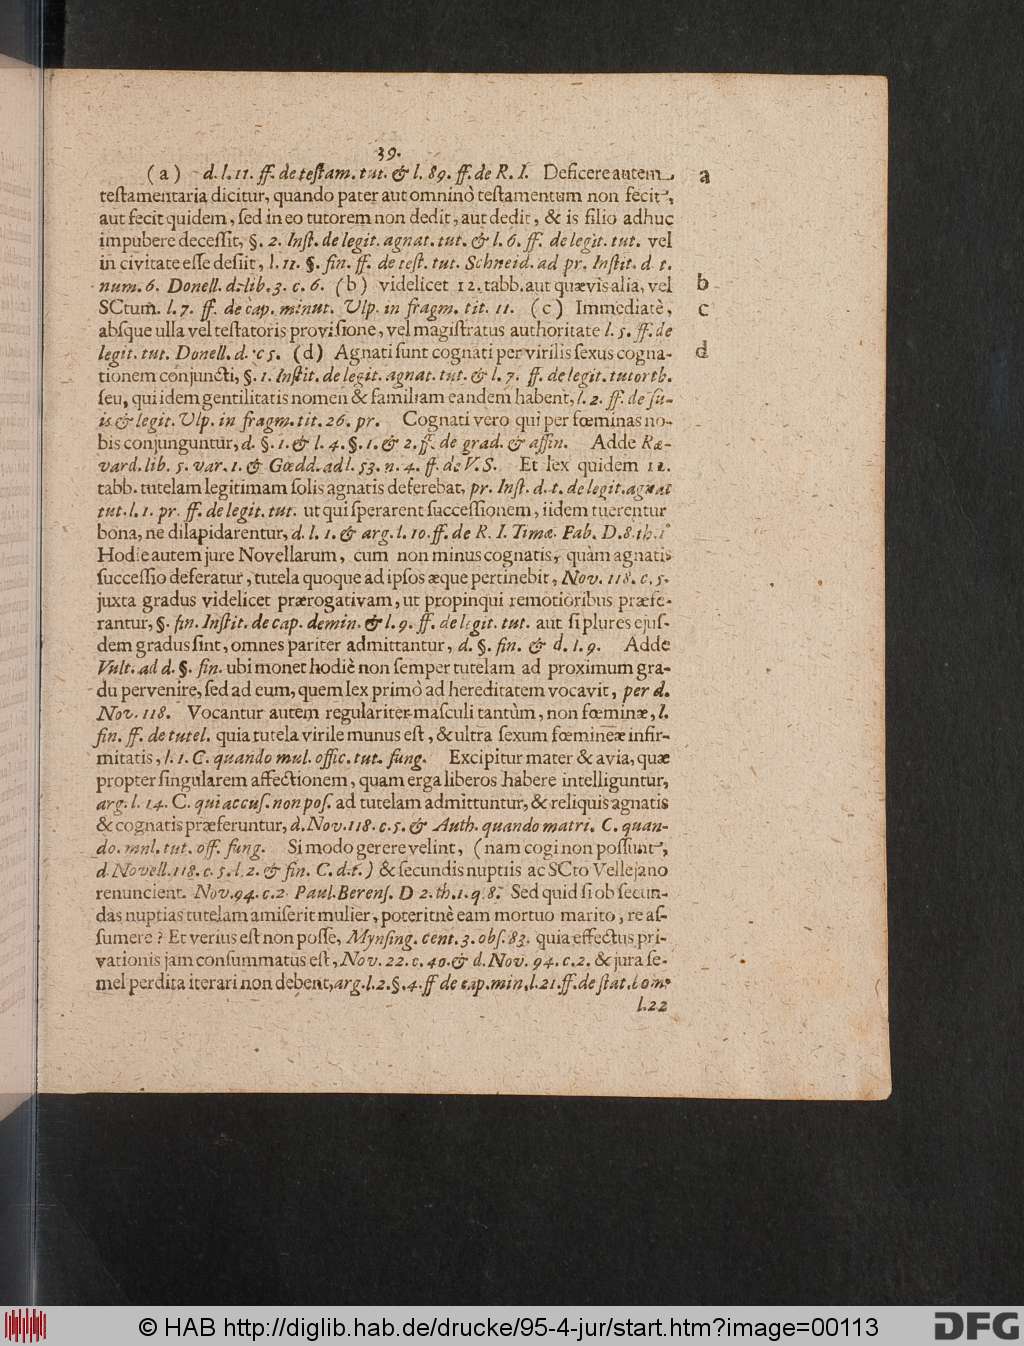 39.
(a) d. l. 11. ff. de testam. tut. & l. 89. ff. de R. I. Deficere autem a
testamentaria dicitur, quando pater aut omninò testamentum non fecit,
aut fecit quidem, sed in eo tutorem non dedit, aut dedit, & is filio adhuc
impubere decessit, §. 2. Inst. de legit. agnat. tut. & l. 6. ff. de legit. tut. vel
in civitate esse desiit, l. 11. §. fin. ff. de test. tut. Schneid. ad pr. Instit. d. t.
num. 6. Donell. d. lib. 3. c. 6. (b) videlicet 12. tabb. aut quævis alia, vel b
SCtum. l. 7. ff. de cap. minut. Ulp. in fragm. tit. 11. (c) Immediatè, c
absque ulla vel testatoris provisione, vel magistratus authoritate l. 5. ff. de
legit. tut. Donell. d. c 5. (d) Agnati sunt cognati per virilis sexus cogna- d
tionem conjuncti, §. 1. Instit. de legit. agnat. tut. & l. 7. ff. de legit. tutorib.
seu, qui idem gentilitatis nomen & familiam eandem habent, l. 2. ff. de su-
is & legit. Ulp. in fragm. tit. 26. pr. Cognati vero qui per fœminas no-
bis conjunguntur, d. §. 1. & l. 4. §. 1. & 2. ff. de grad. & affin. Adde Ræ-
vard. lib. 5. var. 1. & Gœdd. ad l. 53. n. 4. ff. de V. S. Et lex quidem 12.
tabb. tutelam legitimam solis agnatis deferebat, pr. Inst. d. t. de legit. agnat
tut. l. 1. pr. ff. de legit. tut. ut qui sperarent successionem, iidem tuerentur
bona, ne dilapidarentur, d. l. 1. & arg. l. 10. ff. de R. I. Timæ. Fab. D. 8. th. 1
Hodie autem jure Novellarum, cum non minus cognatis, quàm agnatis
successio deferatur, tutela quoque ad ipsos æque pertinebit, Nov. 118. c. 5.
juxta gradus videlicet prærogativam, ut propinqui remotioribus præfe-
rantur, §. fin. Instit. de cap. demin. & l. 9. ff. de legit. tut. aut si plures ejus-
dem gradus sint, omnes pariter admittantur, d. §. fin. & d. l. 9. Adde
Vult. ad d. §. fin. ubi monet hodiè non semper tutelam ad proximum gra-
du pervenire, sed ad eum, quem lex primò ad hereditatem vocavit, per d.
Nov. 118. Vocantur autem regulariter masculi tantùm, non fœminæ, l.
fin. ff. de tutel. quia tutela virile munus est, & ultra sexum fœmineæ infir-
mitatis, l. 1. C. quando mul. offic. tut. fung. Excipitur mater & avia, quæ
propter singularem affectionem, quam erga liberos habere intelliguntur,
arg. l. 14. C. qui accus. non pos. ad tutelam admittuntur, & reliquis agnatis
& cognatis præferuntur, d. Nov. 118. c. 5. & Auth. quando matri. C. quan-
do. mul. tut. off. fung. Si modo gerere velint, (nam cogi non possunt,
d. Novell. 118. c. 5. l. 2. & fin. C. d. t.) & secundis nuptiis ac SCto Vellejano
renuncient. Nov. 94. c. 2. Paul. Berens. D 2. th. 1. q. 8. Sed quid si ob secun-
das nuptias tutelam amiserit mulier, poteritnè eam mortuo marito, reas-
sumere? Et verius est non posse, Mynsing. cent. 3. obs. 83. quia effectus pri-
vationis jam consummatus est, Nov. 22. c. 40. & d. Nov. 94. c. 2. & jura se-
mel perdita iterari non debent, arg. l. 2. §. 4. ff de cap. min. l. 21. ff. de stat. hom.
l. 22
© HAB http://diglib.hab.de/drucke/95-4-jur/start.htm?image=00113
DFG